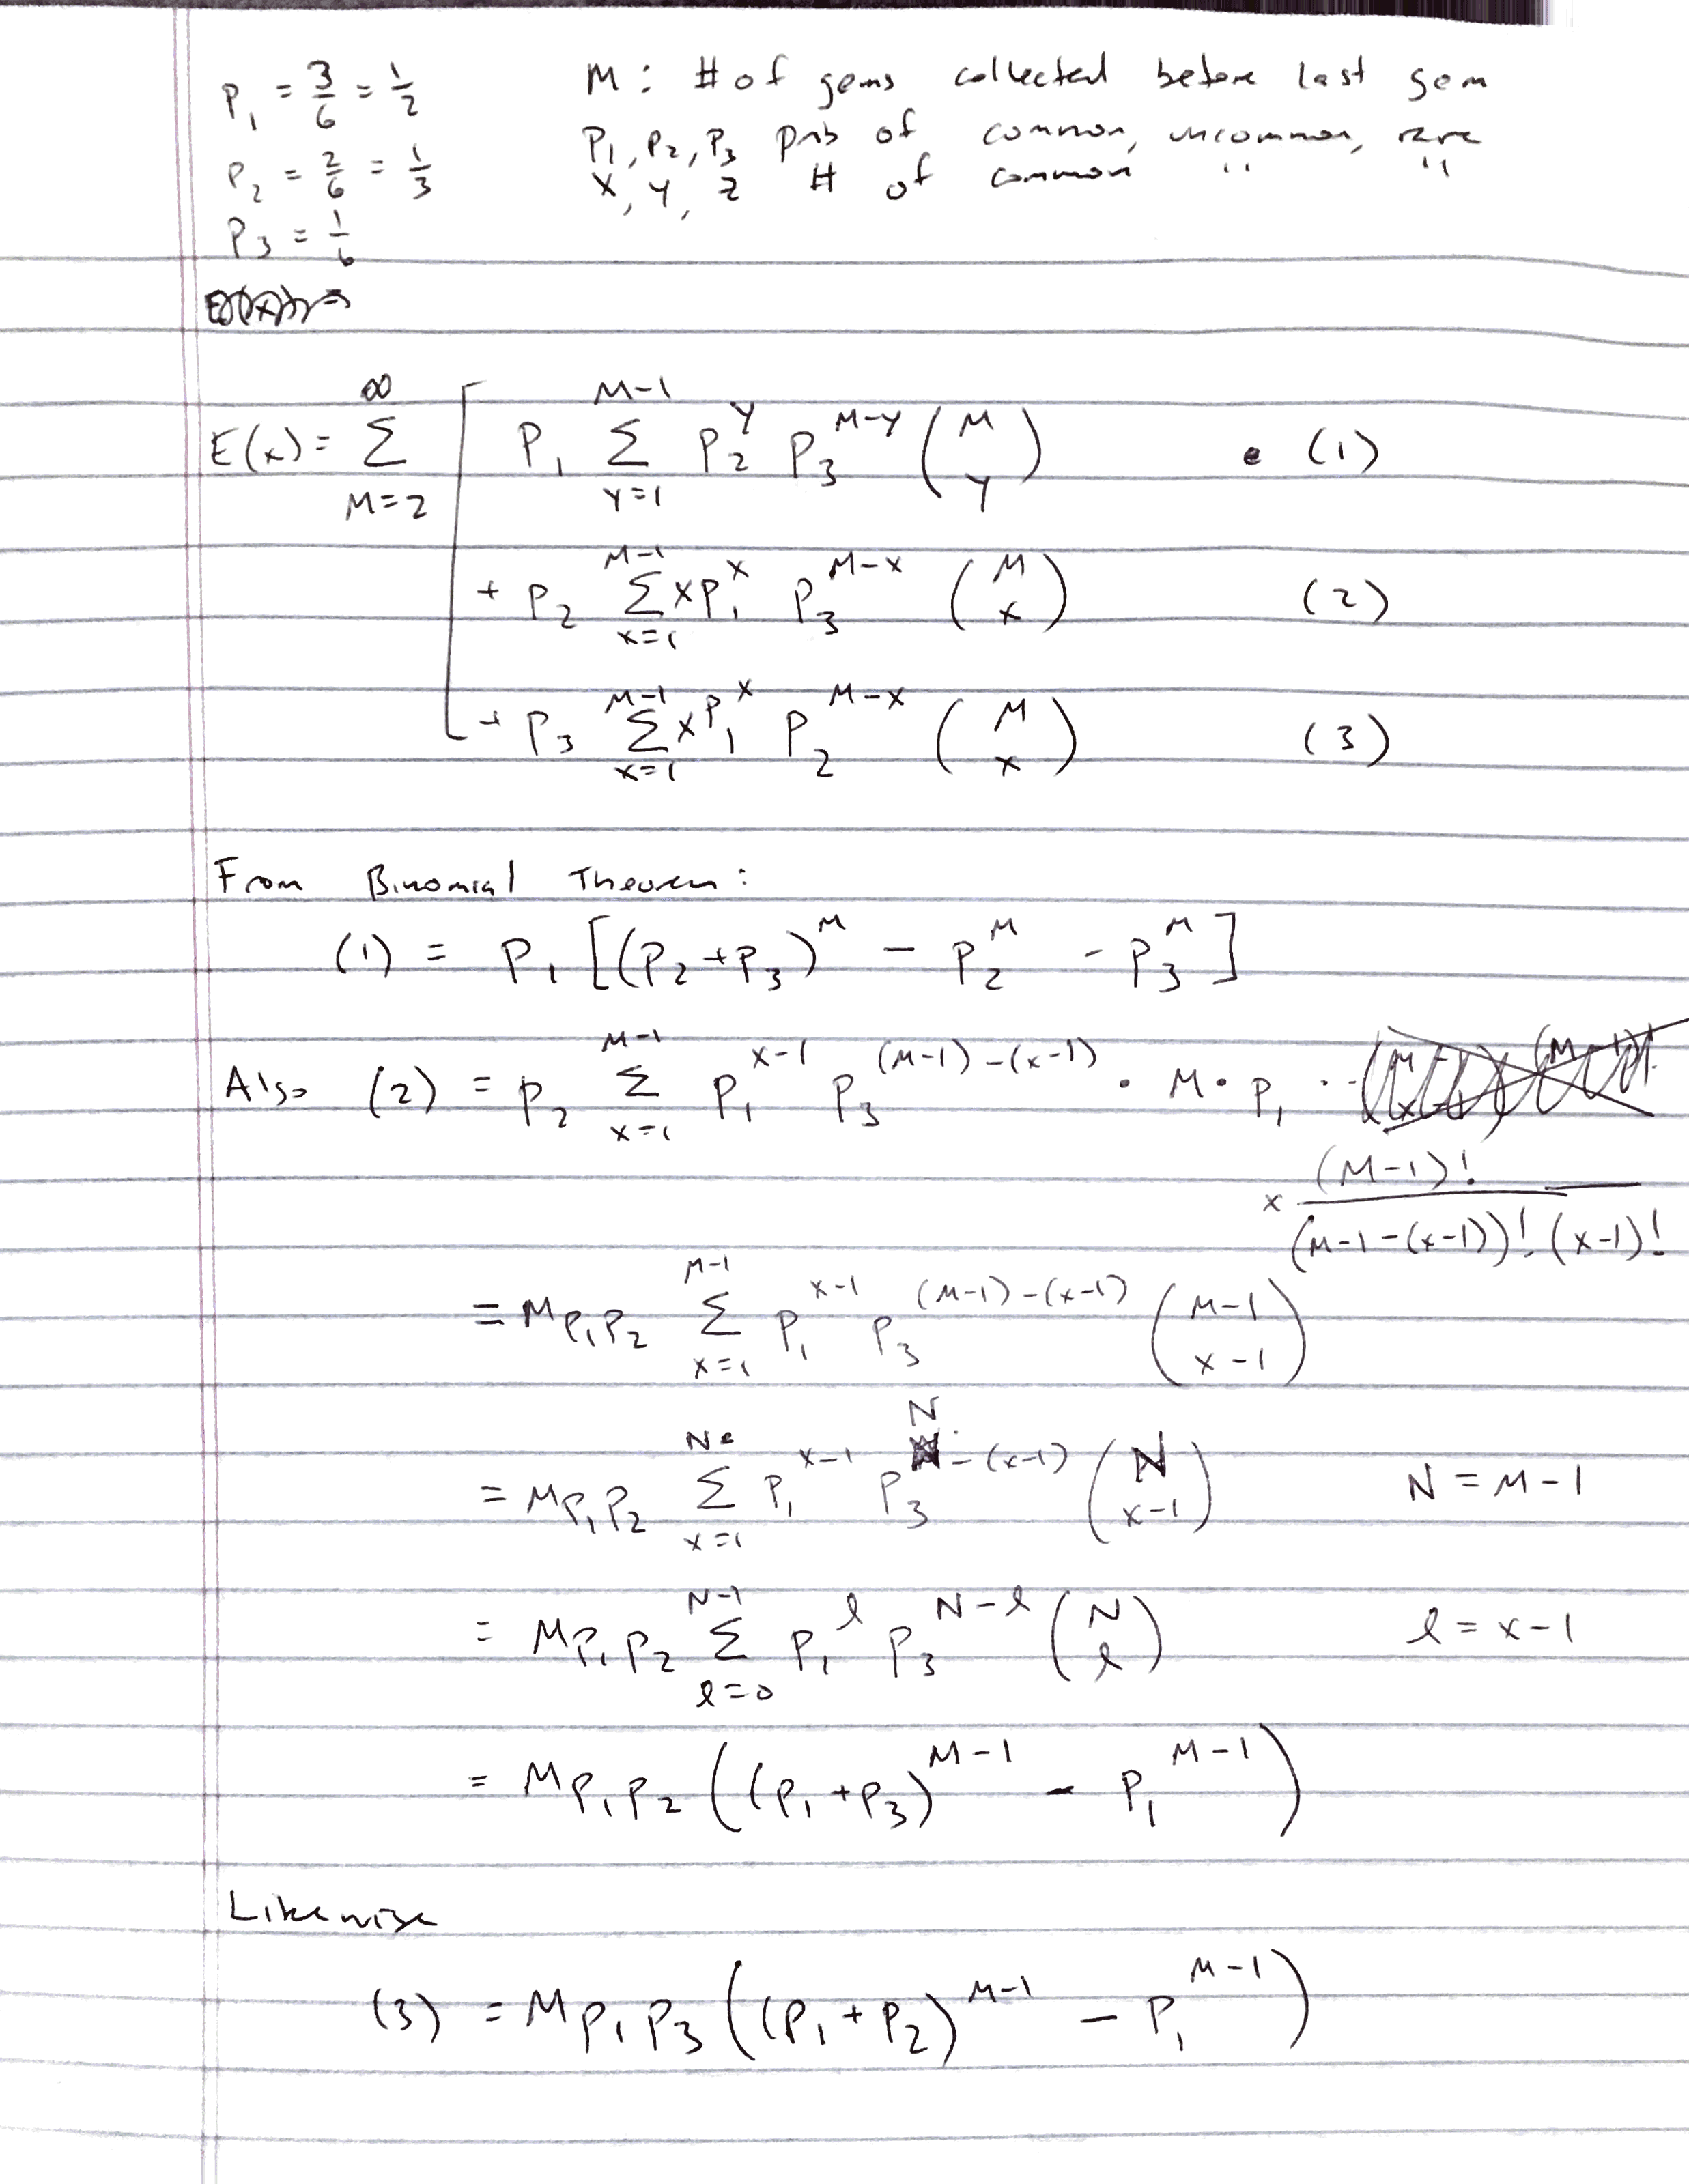 P₁ = 3/6 = 1/2 M: # of gems collected before last gem
P₂ = 2/6 = 1/3 P₁, P₂, P₃ prob of common, uncommon, rare
P₃ = 1/6 X, Y, Z # of common " "
E(x) = Σ_{M=2}^{∞} [ P₁ Σ_{Y=1}^{M-1} P₂^Y P₃^{M-Y} (M Y) (1)
+ P₂ Σ_{x=1}^{M-1} x P₁^x P₃^{M-x} (M x) (2)
+ P₃ Σ_{x=1}^{M-1} x P₁^x P₂^{M-x} (M x) (3)
From Binomial Theorem:
(1) = P₁ [(P₂+P₃)^M - P₂^M - P₃^M]
Also (2) = P₂ Σ_{x=1}^{M-1} P₁^{x-1} P₃^{(M-1)-(x-1)} · M · P₁ ·
× (M-1)! / (M-1-(x-1))! (x-1)!
= M P₁ P₂ Σ_{x=1}^{M-1} P₁^{x-1} P₃^{(M-1)-(x-1)} (M-1 x-1)
= M P₁ P₂ Σ_{x=1}^{N} P₁^{x-1} P₃^{N-(x-1)} (N x-1) N = M-1
= M P₁ P₂ Σ_{l=0}^{N-1} P₁^l P₃^{N-l} (N l) l = x-1
= M P₁ P₂ ((P₁+P₃)^{M-1} - P₁^{M-1})
Likewise
(3) = M P₁ P₃ ((P₁+P₂)^{M-1} - P₁^{M-1})